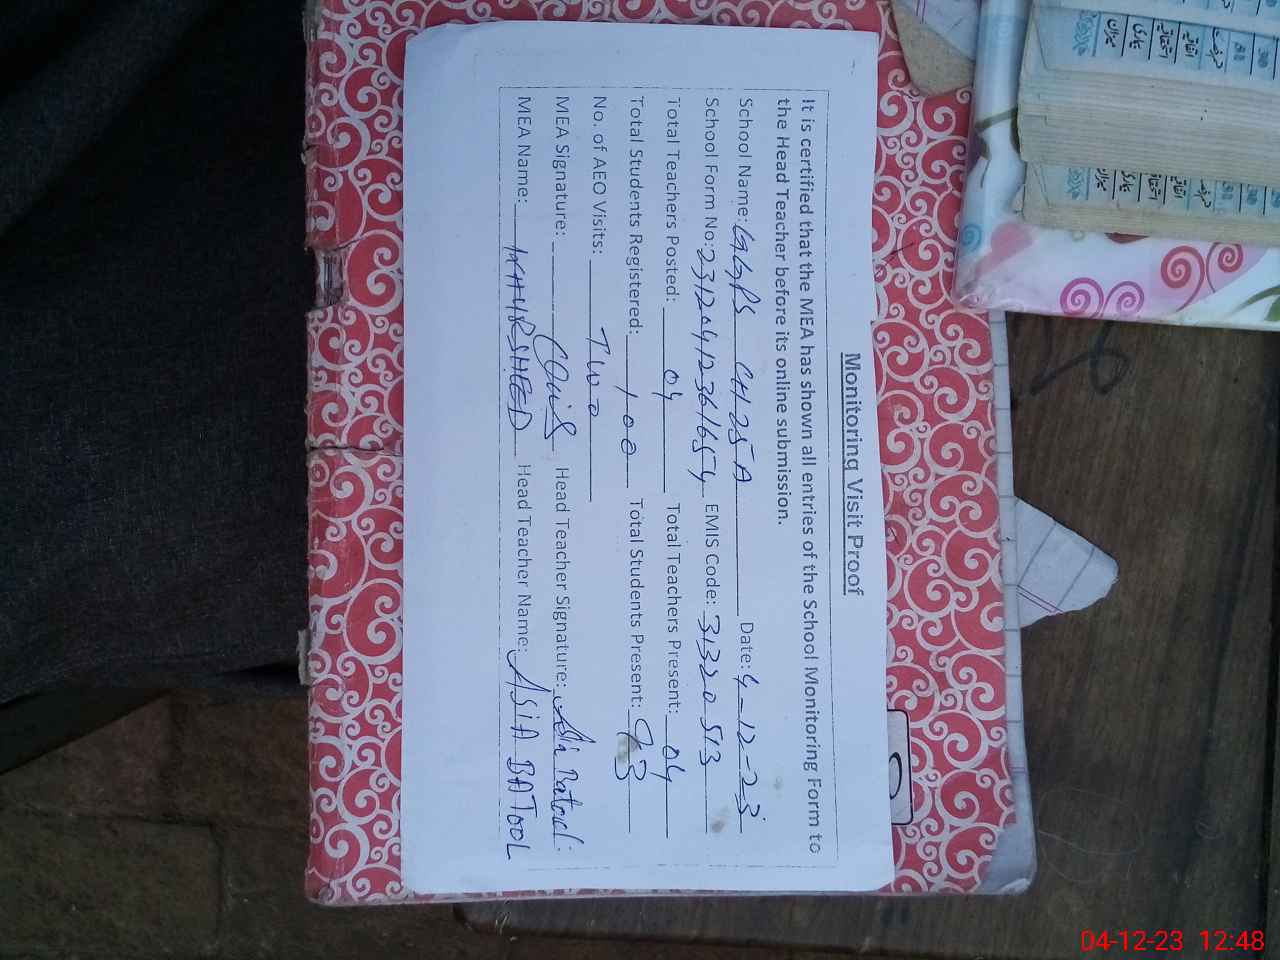 Monitoring Visit Proof
It is certified that the MEA has shown all entries of the School Monitoring Form to
the Head Teacher before its online submission.
School Name: GGPS CH 25 A Date: 4-12-23
School Form No: 23120412361654 EMIS Code: 31320513
Total Teachers Posted: 04 Total Teachers Present: 04
Total Students Registered: 100 Total Students Present: 93
No. of AEO Visits: Two
MEA Signature: Head Teacher Signature: Asia Batool
MEA Name: KHURSHEED Head Teacher Name: ASIA BATOOL
04-12-23 12:48